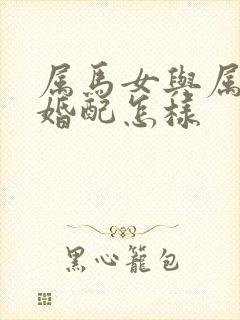 属馬女與属
婚配怎樣
黑心籠包